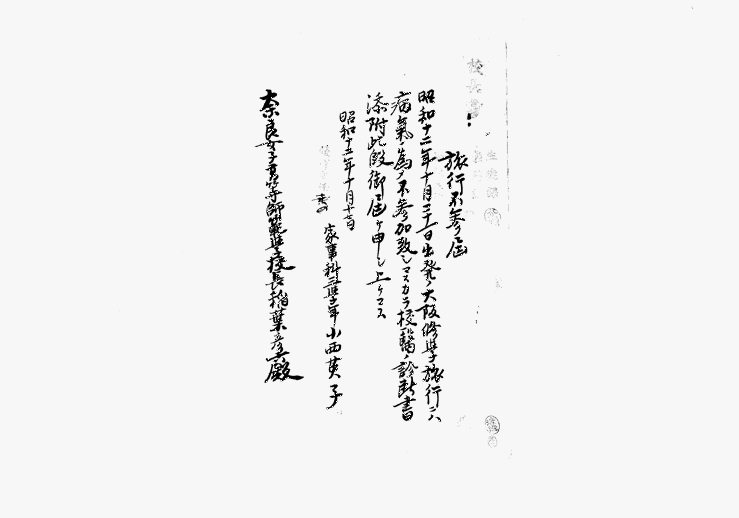 旅行不參屆
昭和十二年十月二十一日出発ノ大阪修學旅行ニハ
病氣ノ為メ不參加致シマスカラ校醫ノ診断書
添附此段御屆ケ申シ上ケマス
昭和十二年十月十七日
家事科第三年 小西英子
奈良女子高等師範學校長稲葉彦六殿